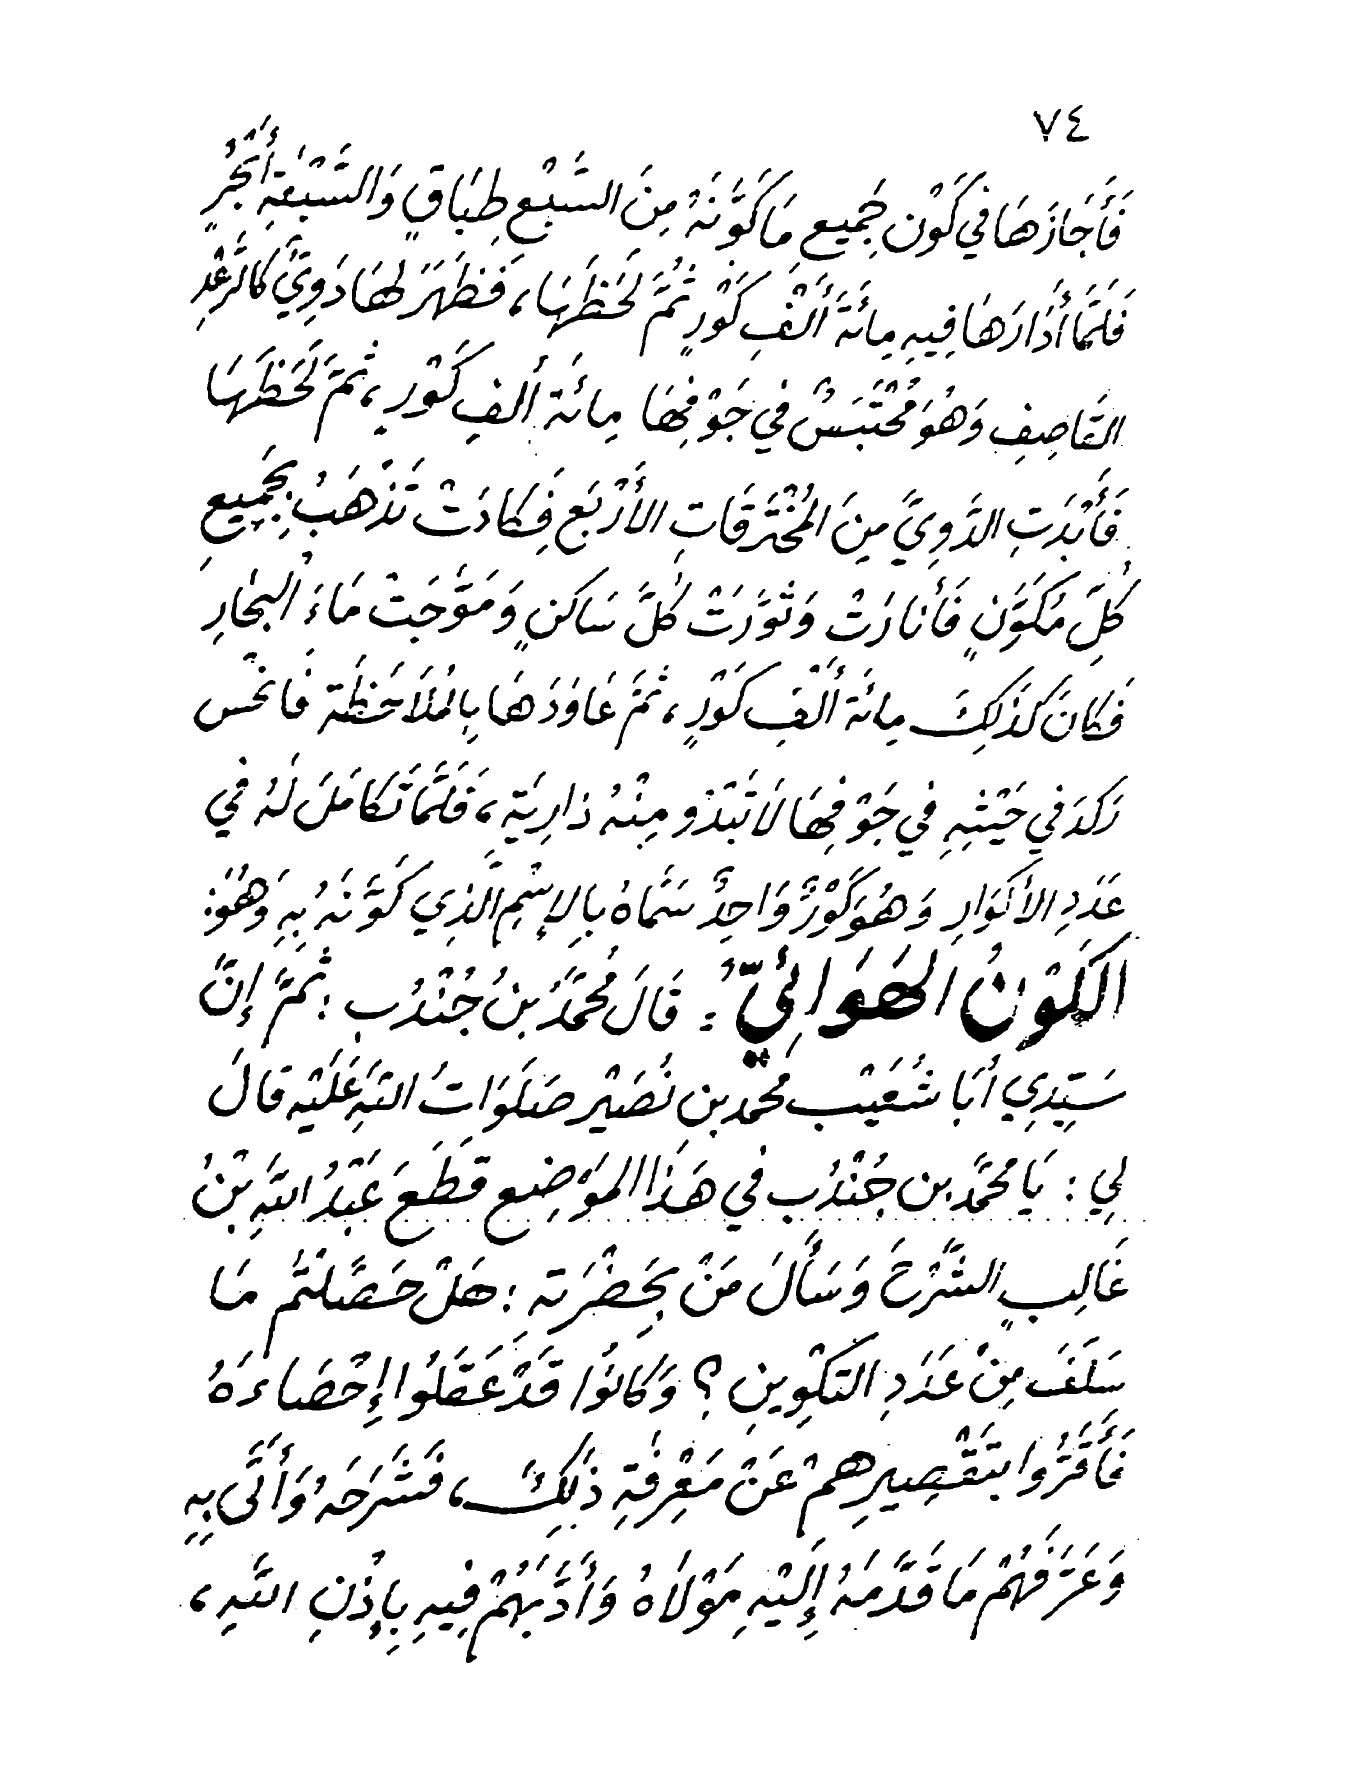 ٧٤
فَأَجَازَهَا فِي كَوْنِ جَمِيعِ مَا كَوَّنَهُ مِنَ السَّبْعِ طِبَاقٍ وَالسَّبْعَةِ أَبْحُرٍ
فَلَمَّا أَدَارَهَا فِيهِ مِائَةَ أَلْفِ كَوْرٍ ثُمَّ لَحَظَهَا، فَظَهَرَ لَهَا دَوِيٌّ كَالرَّعْدِ
القَاصِفِ وَهُوَ مُحْتَبَسٌ فِي جَوْفِهَا مِائَةَ أَلْفِ كَوْرٍ، ثُمَّ لَحَظَهَا
فَأَبْدَتِ الدَّوِيَّ مِنَ المُخْتَرَقَاتِ الأَرْبَعِ فَكَادَتْ تَذْهَبُ بِجَمِيعِ
كُلِّ مُكَوَّنٍ فَأَنارَتْ وَثَوَّرَتْ كُلَّ سَاكنٍ وَمَوَّجَتْ مَاءَ البِحَارِ
فَكَانَ كَذَلِكَ مِائَةَ أَلْفِ كَوْرٍ، ثُمَّ عَاوَدَهَا بِالمُلَاحَظَةِ فَانْحَسَ
رَكَدَ فِي حَيْثِهِ فِي جَوْفِهَا لَا تَبْدُو مِنْهُ ذَارِيَةٍ، فَلَمَّا تَكَامَلَ لَهُ فِي
عَدَدِ الأَكْوَارِ وَهُوَ كَوْرٌ وَاحِدٌ سَمَّاهُ بِالإِسْمِ الَّذِي كَوَّنَهُ بِهِ وَهُوَ:
الكَوْنُ الهَوَائِيُّ: قَالَ مُحَمَّدُ بْنُ جُنْدُبِ: ثُمَّ إِنَّ
سَيِّدِي أَبَا شُعَيْب مُحَمَّد بن نُصَيْر صَلَوَاتُ اللهِ عَلَيْهِ قَالَ
لِي: يَا مُحَمَّدُ بن جُنْدُب فِي هَذَا المَوْضِعِ قَطَعَ عَبْدُ اللهِ بْنُ
غَالِبٍ الشَّرْحَ وَسَأَلَ مَنْ بِحَضْرَتِهِ: هَلْ حَصَّلْتُم مَا
سَلَفَ مِنْ عَدَدِ التَكْوِينِ؟ وَكَانُوا قَدْ عَقَلُوا إِحْصَاءَهُ
فَأَقَرُّوا بِتَقْصِيرِهِمْ عَنْ مَعْرِفَةِ ذَلِكَ، فَشَرَحَهُ وَأَتَى بِهِ
وَعَرَفَهُمْ مَا قَدَّمَهُ إِلَيْهِ مَوْلَاهُ وَأَدَّبَهُمْ فِيهِ بِإِذْنِ اللهِ،